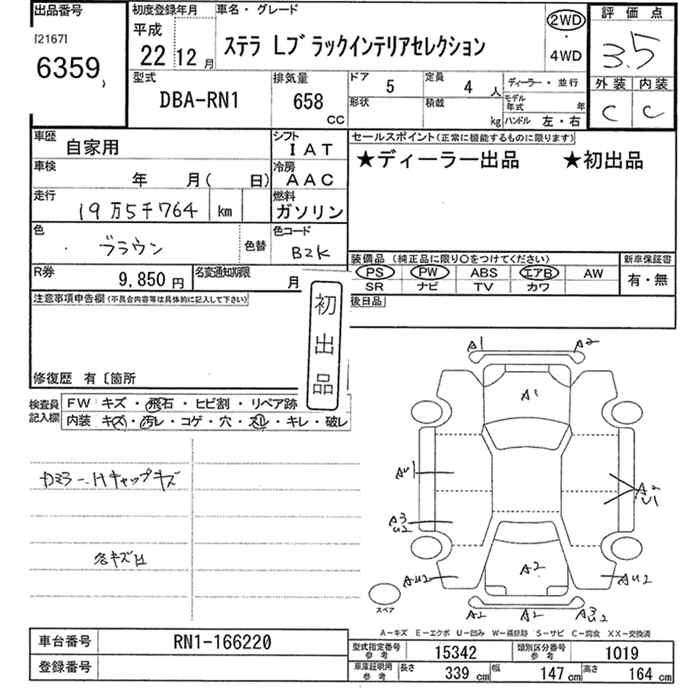 出品番号 初度登録年月 車名・グレード 2WD・4WD 評価点
[2167] 6359 平成22 12月 ステラ Lブラックインテリアセレクション 3.5
外装 内装
C C
型式 排気量 ドア 5 定員 4人 ディーラー・並行
DBA-RN1 658 CC 形状 積載 kg モデル年式 年
ハンドル 左・右
車歴 自家用 シフト IAT セールスポイント(正常に機能するものに限ります)
★ディーラー出品 ★初出品
車検 年 月( 日) 冷房 AAC
走行 19万5千764 km 燃料 ガソリン
色 ブラウン 色替 色コード B2K
装備品 (純正品に限り○をつけてください) 新車保証書
PS PW ABS エアB AW 有・無
SR ナビ TV カワ
R券 9,850円 名変通知期限 月
後日品
注意事項申告欄(不具合内容等は具体的に記入して下さい)
初出品
修復歴 有〔箇所
検査員記入欄 FW キズ・飛石・ヒビ割・リペア跡
内装 キズ・汚レ・コゲ・穴・スレ・キレ・破レ
A1 A2
A1
AU1
A2
U1
A3
U2
AU2 A2 AU2
A2 A2 A3
U2
スペア
A－キズ E－エクボ U－凹み W－補修跡 S－サビ C－腐食 XX－交換済
車台番号 RN1-166220
登録番号
型式指定番号 参考 15342 類別区分番号 参考 1019
車庫証明用 参考 長さ 339 cm 幅 147 cm 高さ 164 cm